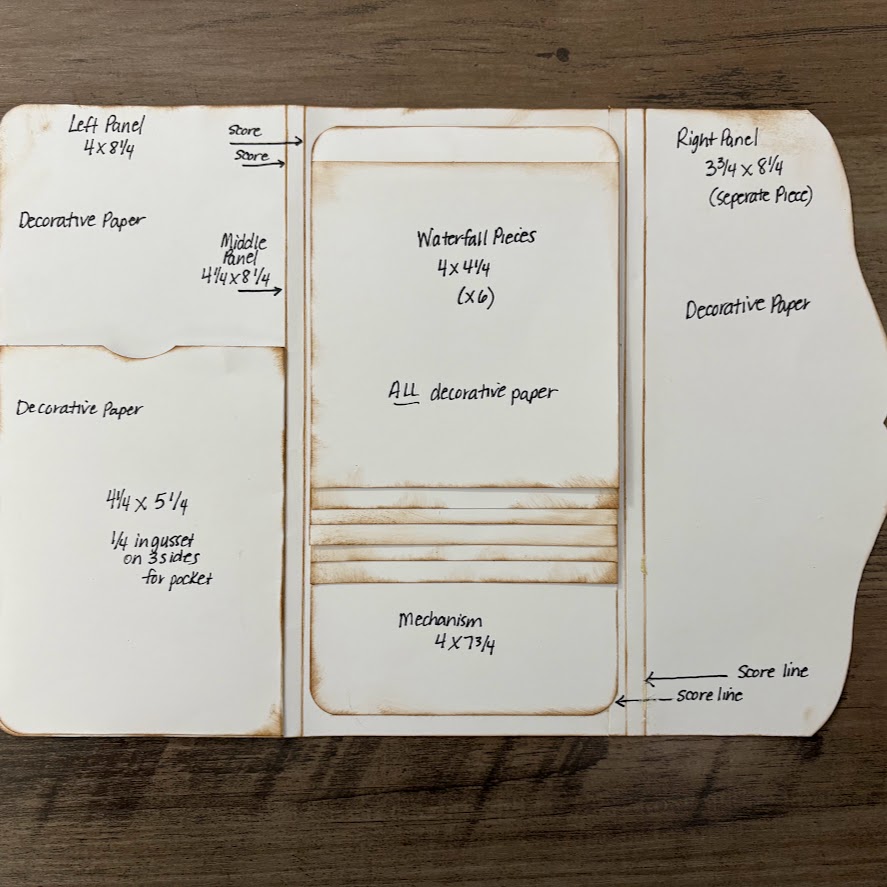 Left Panel
4 x 8 1/4
Decorative Paper
score
score
Middle
Panel
4 1/4 x 8 1/4
Decorative Paper
4 1/4 x 5 1/4
1/4 in gusset
on 3 sides
for pocket
Waterfall Pieces
4 x 4 1/4
(x6)
ALL decorative paper
Mechanism
4 x 7 3/4
Right Panel
3 3/4 x 8 1/4
(seperate Piece)
Decorative Paper
Score line
score line